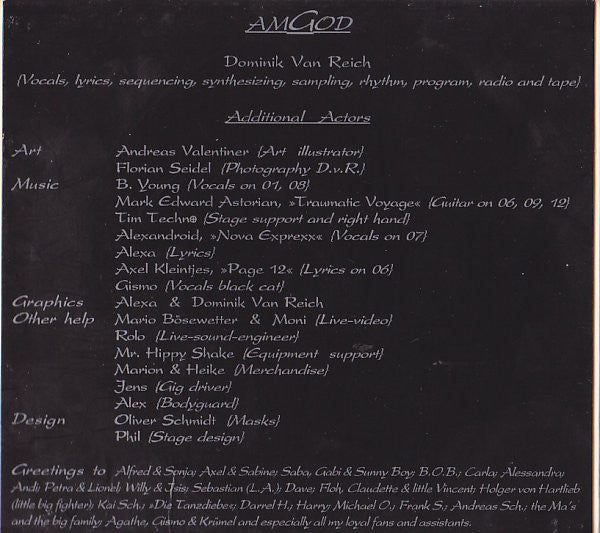 AMGOD
Dominik Van Reich
{Vocals, lyrics, sequencing, synthesizing, sampling, rhythm, program, radio and tape}
Additional Actors
Art Andreas Valentiner {Art illustrator}
Florian Seidel {Photography D.v.R.}
Music B. Young {Vocals on 01, 08}
Mark Edward Astorian, »Traumatic Voyage« {Guitar on 06, 09, 12}
Tim Techno {Stage support and right hand}
Alexandroid, »Nova Exprexx« {Vocals on 07}
Alexa {Lyrics}
Axel Kleintjes, »Page 12« {Lyrics on 06}
Gismo {Vocals black cat}
Graphics Alexa & Dominik Van Reich
Other help Mario Bösewetter & Moni {Live-video}
Rolo {Live-sound-engineer}
Mr. Hippy Shake {Equipment support}
Marion & Heike {Merchandise}
Jens {Gig driver}
Alex {Bodyguard}
Design Oliver Schmidt {Masks}
Phil {Stage design}
Greetings to Alfred & Sonja; Axel & Sabine; Saba, Gabi & Sunny Boy; B.O.B.; Carla; Alessandra;
Andi; Petra & Lionel; Willy & Isis; Sebastian (L.A.); Dave; Floh, Claudette & little Vincent; Holger von Hartlieb
(little big fighter); Kai Sch.; »Die Tanzdiebe«; Darrel H.; Harry; Michael O.; Frank S.; Andreas Sch.; the Ma's
and the big family; Agathe, Gismo & Krümel and especially all my loyal fans and assistants.